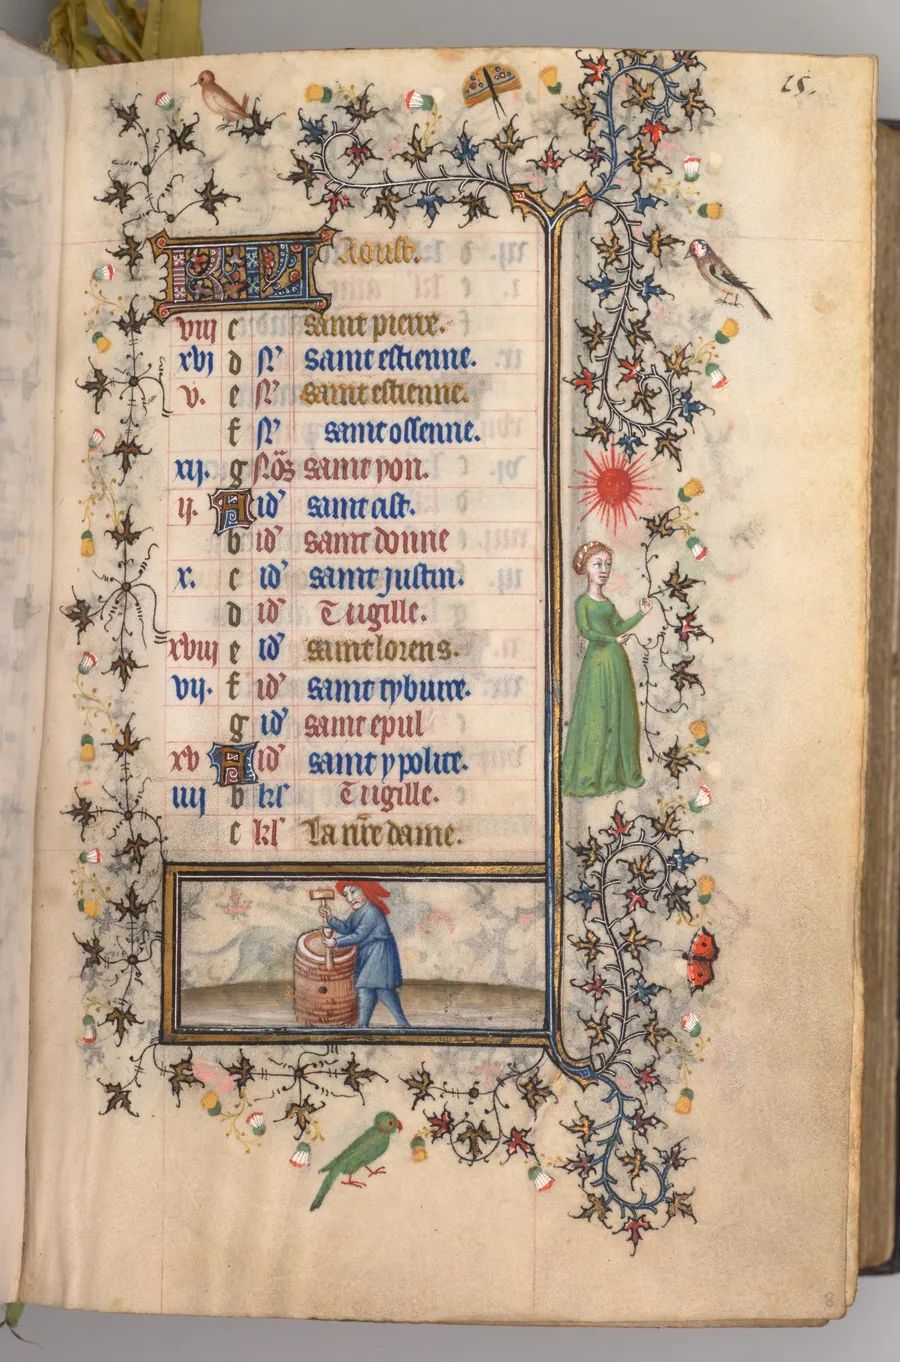 15.
KL Aoust.
viij c saint pierre.
xvj d N' saint estienne.
v. e N' saint estienne.
f N' saint ossenne.
xij. g Nõs saint yon.
ij. A id' saint cast.
b id' saint donne
x. c id' saint justin.
d id' Tigille.
xviij e id' saint lorens.
vij. f id' saint tyburce.
g id' saint epul
xv A id' saint ypolite.
iiij b kl' Tigille.
c kl' La nr̃e dame.
8